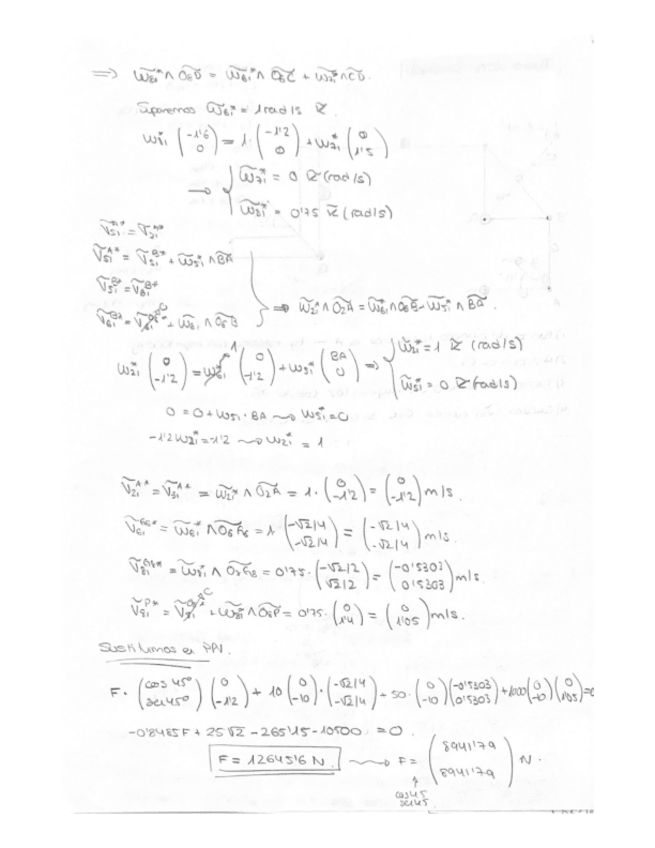 ⇒ ω̃81* ∧ O8D = ω̃61* ∧ O6C + ω̃71* ∧ CD.
Suponemos ω̃61* = 1 rad/s k̃
ω81* (-1'6 0) = 1· (-1'2 0) + ω71* (0 1'5)
→ { ω̃71* = 0 k̃ (rad/s)
ω̃81* = 0'75 k̃ (rad/s)
Ṽ51A* = Ṽ21A*
Ṽ51A* = Ṽ51B* + ω̃51* ∧ BA
Ṽ51B* = Ṽ61B*
Ṽ61B* = Ṽ61O6* 0 + ω̃61 ∧ O6B } ⇒ ω̃21* ∧ O2A = ω̃61* ∧ O6B + ω̃51* ∧ BA.
ω21* (0 -1'2) = ω61* 1 (0 -1'2) + ω51* (BA 0) ⇒ { ω̃21* = 1 k̃ (rad/s)
ω̃51* = 0 k̃ (rad/s)
0 = 0 + ω51 · BA ⇝ ω51* = 0
-1'2 ω21* = -1'2 ⇝ ω21* = 1
Ṽ21A* = Ṽ51A* = ω̃21* ∧ O2A = 1 · (0 -1'2) = (0 -1'2) m/s.
Ṽ61G6* = ω̃61* ∧ O6G6 = 1 (-√2/4 -√2/4) = (-√2/4 -√2/4) m/s.
Ṽ81G8* = ω̃81* ∧ O8G8 = 0'75 · (-√2/2 √2/2) = (-0'5303 0'5303) m/s.
Ṽ81P* = Ṽ81O8* 0 + ω̃81* ∧ O8P = 0'75 · (0 1'4) = (0 1'05) m/s.
Sustituimos en PPV.
F · (cos 45º sen 45º) (0 -1'2) + 10 (0 -10) · (-√2/4 -√2/4) + 50 · (0 -10) (-0'5303 0'5303) + 1000 (0 -10) (0 1'05) = 0
-0'8485F + 25√2 - 265'15 - 10500 = 0
F = 12645'6 N. ⇝ F = (8941'79 8941'79) N.
cos 45
sen 45